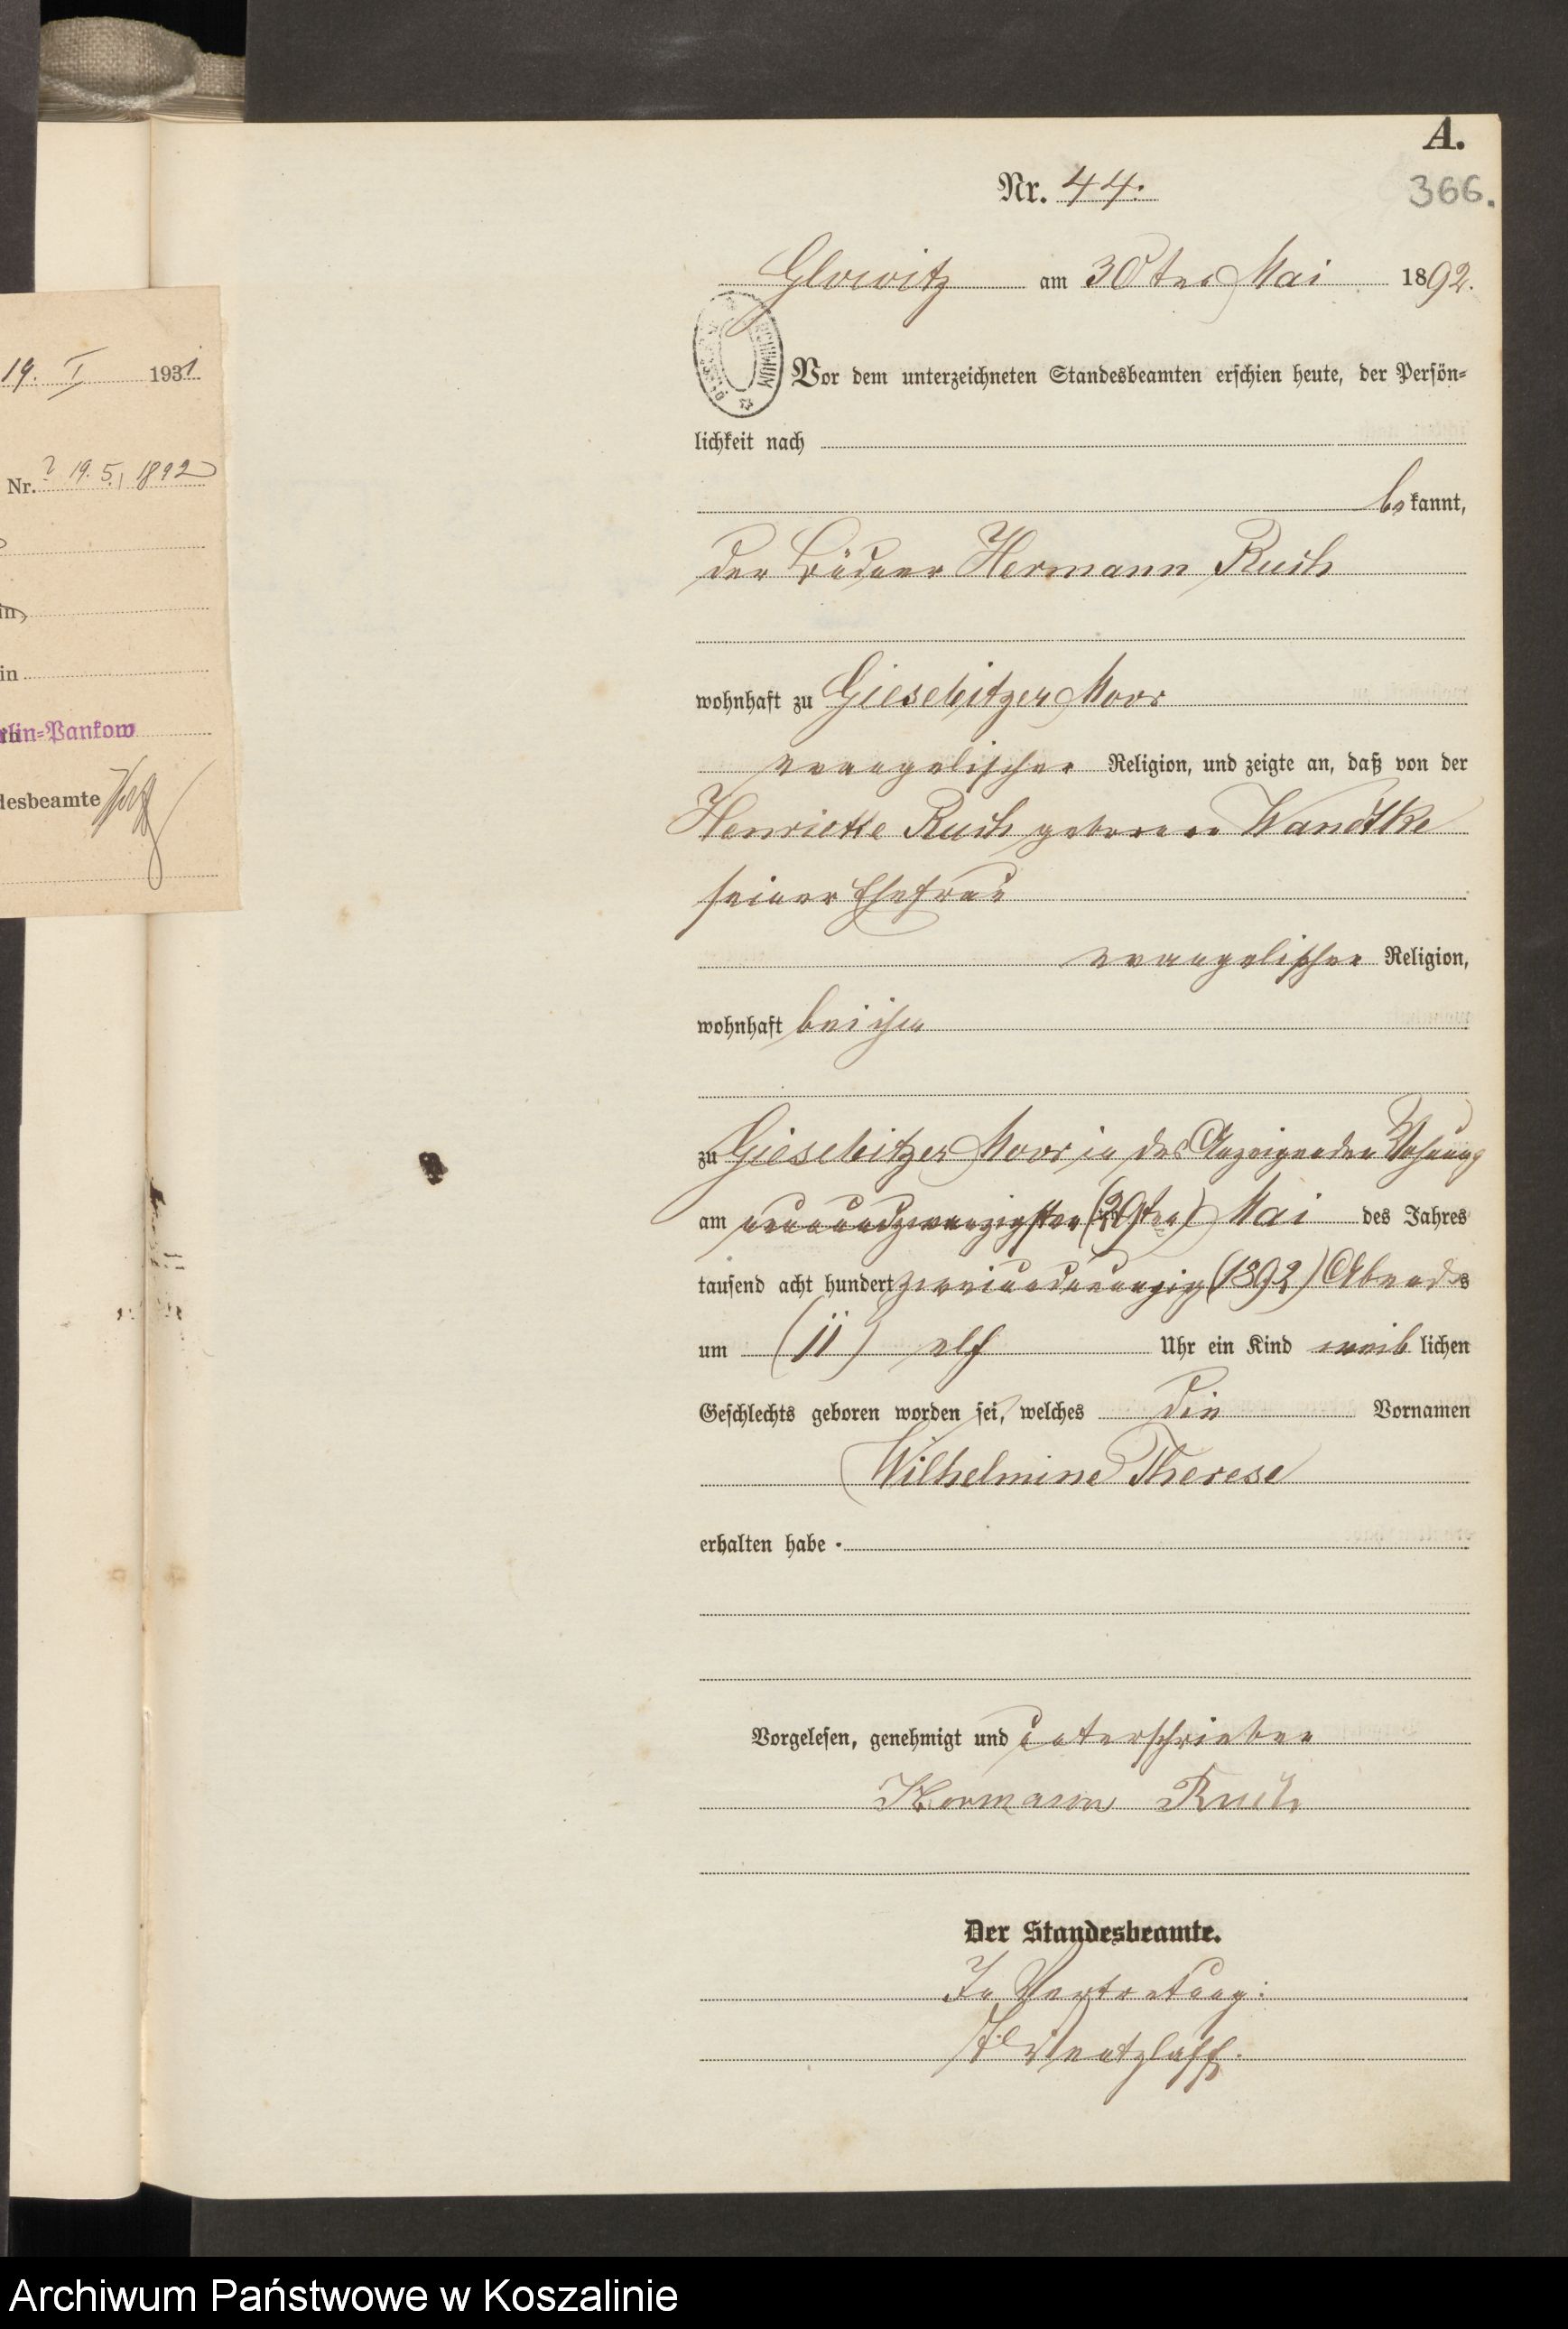 A.
Nr. 44.
366.
Glowitz am 30ten Mai 1892.
Vor dem unterzeichneten Standesbeamten erschien heute, der Persön-
lichkeit nach
bekannt,
der Büdner Hermann Ruch
wohnhaft zu Giesebitzer Moor
evangelischer Religion, und zeigte an, daß von der
Henriette Ruch geborene Wandtke
seiner Ehefrau
evangelischer Religion,
wohnhaft bei ihm
zu Giesebitzer Moor in des Anzeigenden Wohnung
am neunundzwanzigsten (29ten) Mai des Jahres
tausend acht hundert zweiundneunzig (1892) Abends
um (11) elf Uhr ein Kind weiblichen
Geschlechts geboren worden sei, welches die Vornamen
Wilhelmine Therese
erhalten habe.
Vorgelesen, genehmigt und unterschrieben
Hermann Ruch
Der Standesbeamte.
In Vertretung:
Wentzlaff.
19. I 1931
Nr. ? 19.5.1892
in
in
rlin-Pankow
desbeamte
ARCHIWUM
Archiwum Państwowe w Koszalinie